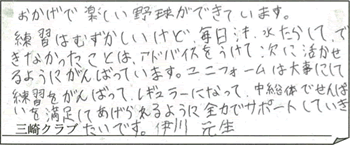 おかげで楽しい野球ができています。
練習はむずかしいけど、毎日汗水たらして、で
きなかったことは、アドバイスをうけて次に活かせ
るようにがんばっています。ユニフォームは大事にして
練習をがんばって、レギュラーになって、中総体でせんぱ
いを満足してあげられるように全力でサポートしていき
三崎クラブたいです。伊川 元生